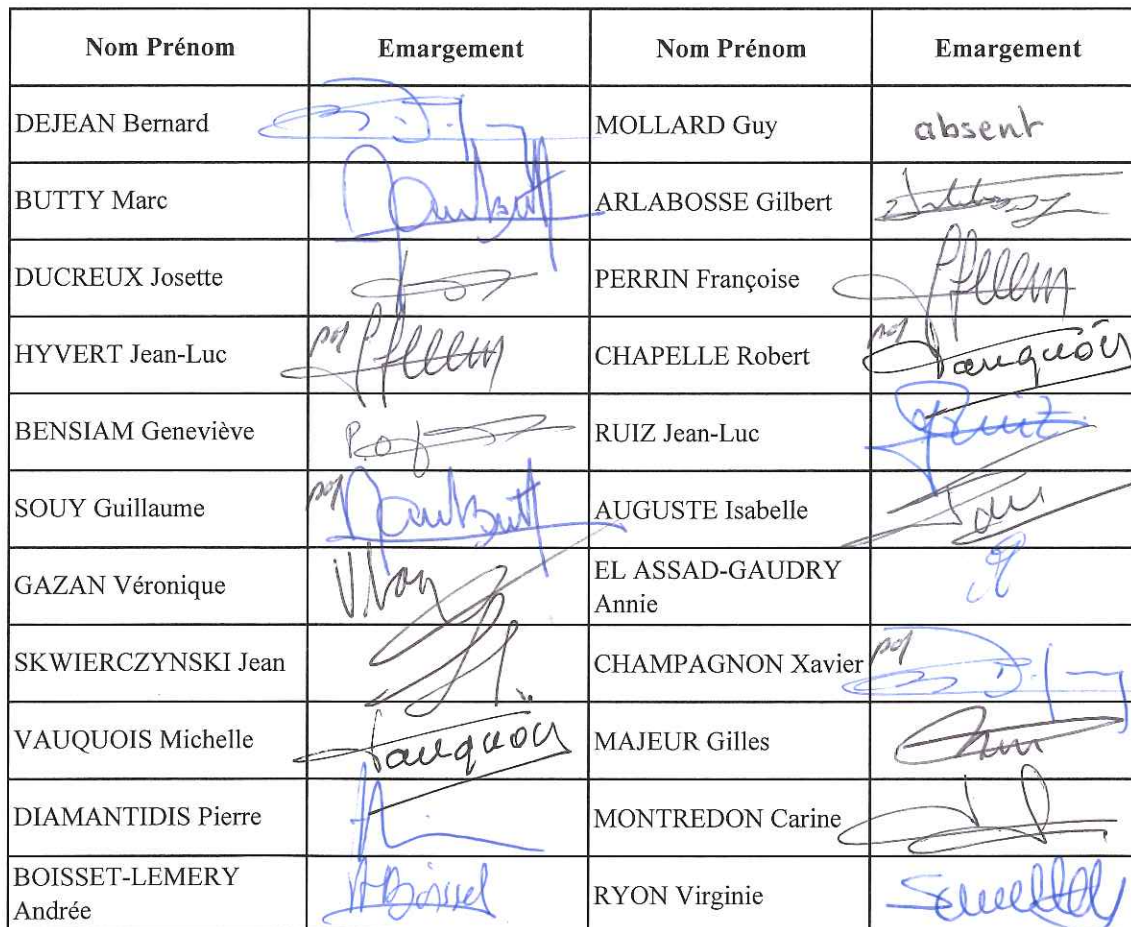 Nom Prénom Emargement Nom Prénom Emargement
DEJEAN Bernard MOLLARD Guy absent
BUTTY Marc ARLABOSSE Gilbert
DUCREUX Josette PERRIN Françoise
HYVERT Jean-Luc CHAPELLE Robert Vauquois
BENSIAM Geneviève RUIZ Jean-Luc Ruiz
SOUY Guillaume AUGUSTE Isabelle
GAZAN Véronique EL ASSAD-GAUDRY
Annie
SKWIERCZYNSKI Jean CHAMPAGNON Xavier
VAUQUOIS Michelle Vauquois MAJEUR Gilles
DIAMANTIDIS Pierre MONTREDON Carine
BOISSET-LEMERY
Andrée RYON Virginie